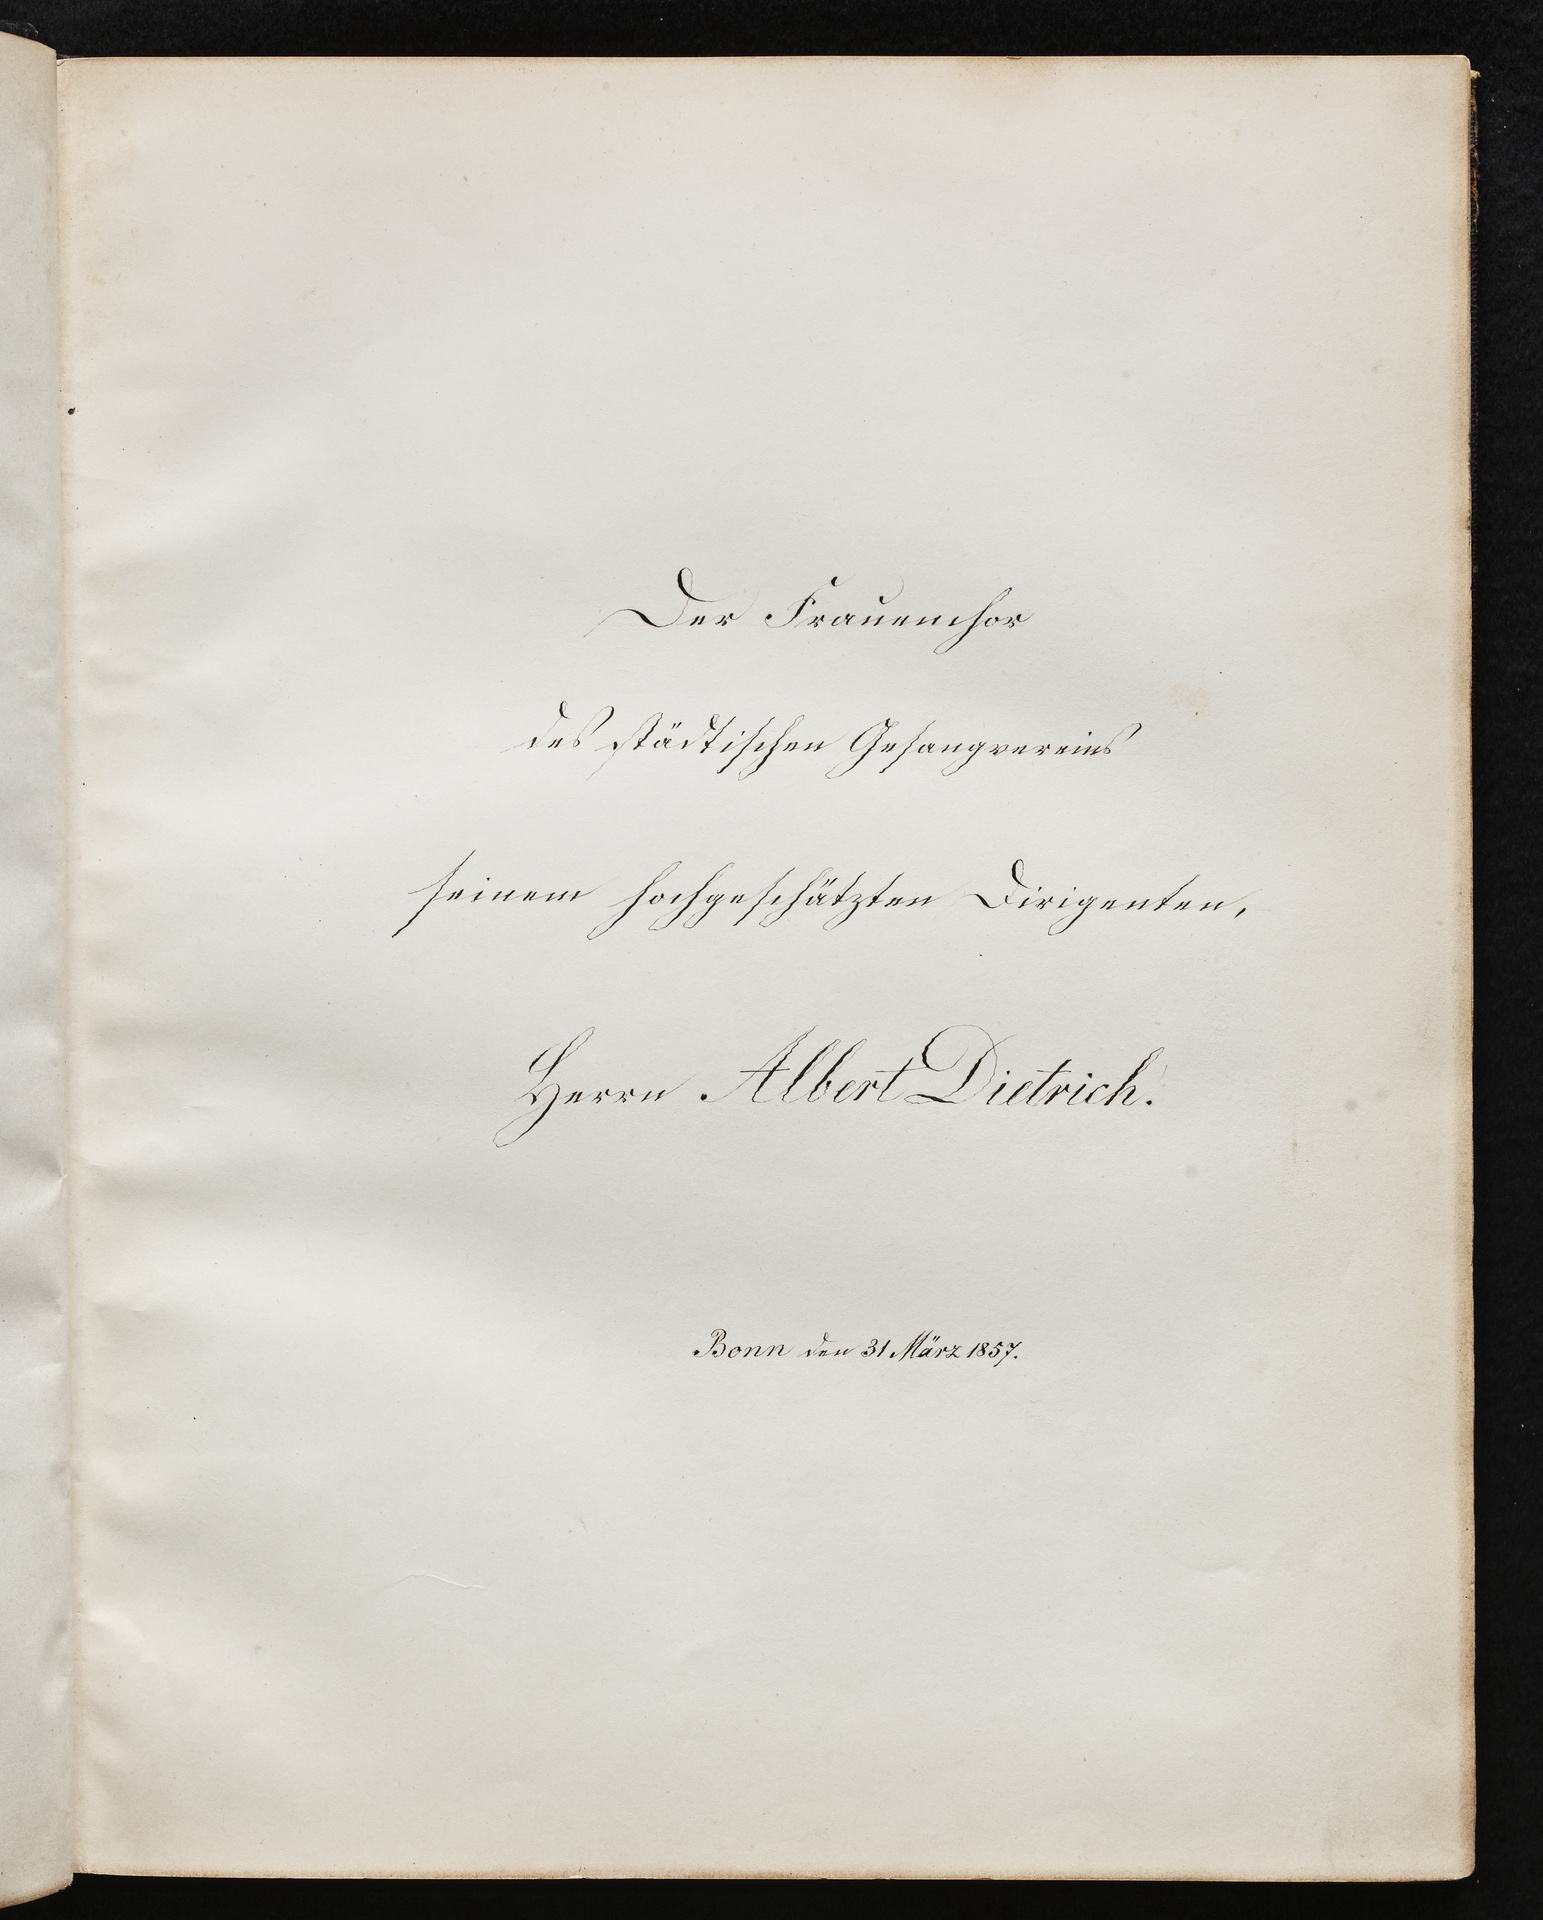 Der Frauenchor
des städtischen Gesangvereins
seinem hochgeschätzten Dirigenten,
Herrn Albert Dietrich.
Bonn den 31 März 1857.